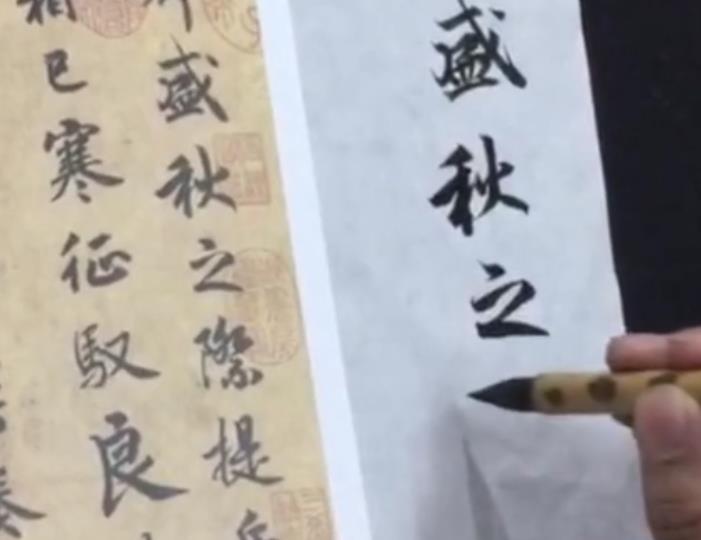 盛秋之
盛秋之際提
已寒征馭良